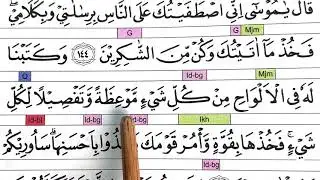 قَالَ يٰمُوْسٰٓى اِنِّى اصْطَفَيْتُكَ عَلَى النَّاسِ بِرِسٰلٰتِيْ وَبِكَلَامِيْ
G Mjm
فَخُذْ مَآ اٰتَيْتُكَ وَكُنْ مِّنَ الشّٰكِرِيْنَ ١٤٤ وَكَتَبْنَا
Q Id-bg Mjm
لَهٗ فِى الْاَلْوَاحِ مِنْ كُلِّ شَيْءٍ مَّوْعِظَةً وَّتَفْصِيْلًا لِّكُلِّ
Id-bl Id-bg Id-bg Ikh
شَيْءٍۚ فَخُذْهَا بِقُوَّةٍ وَّأْمُرْ قَوْمَكَ يَأْخُذُوْا بِاَحْسَنِهَاۗ سَاُورِيْكُمْ